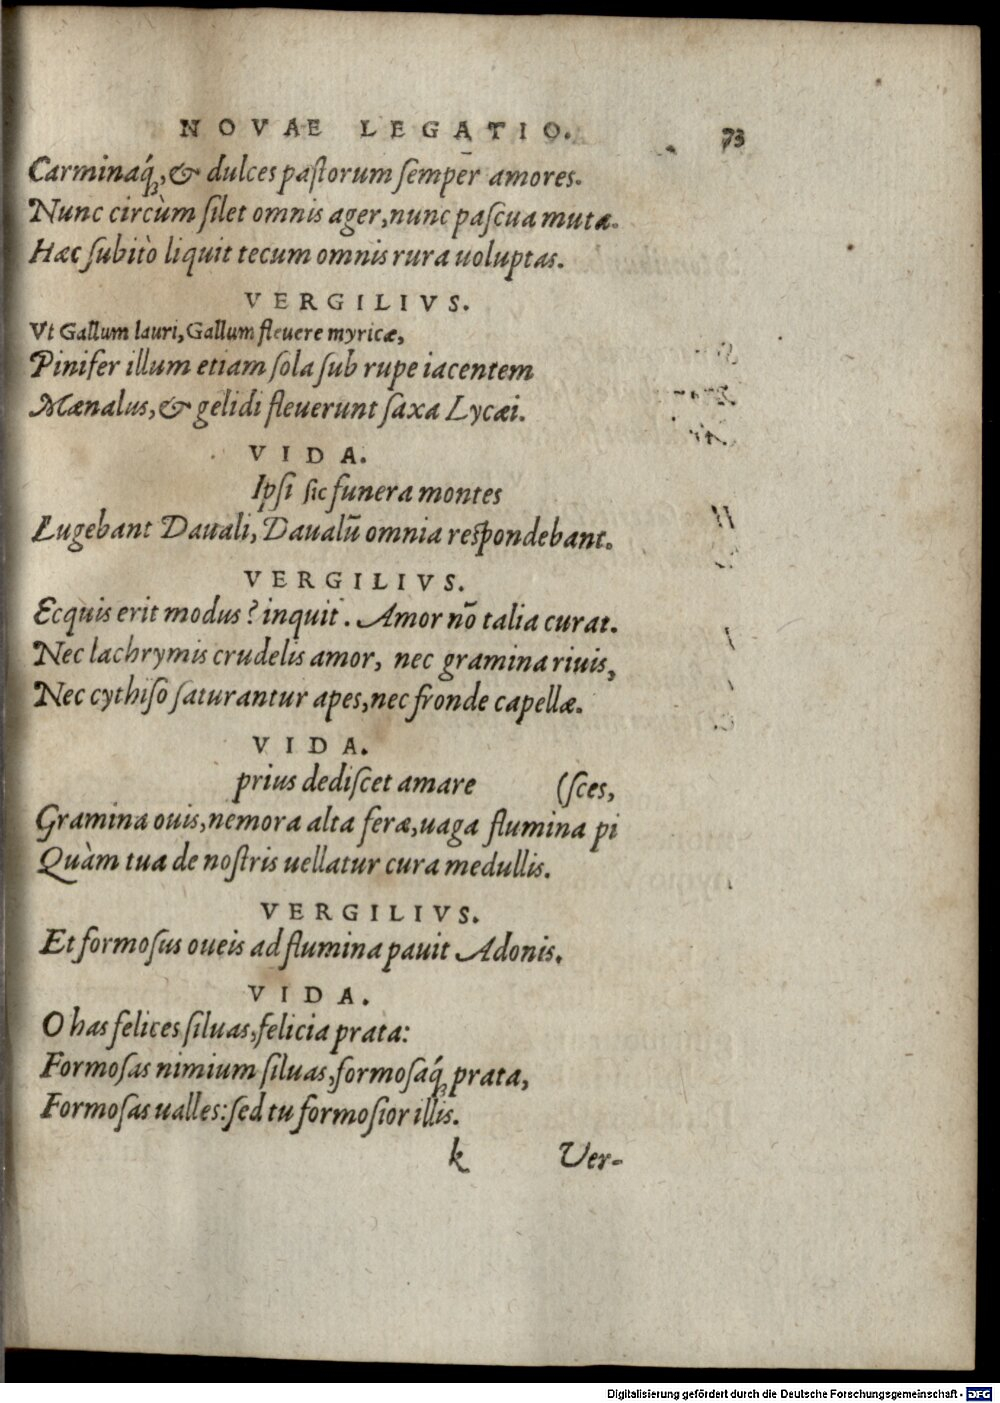 NOVAE LEGATIO. 73
Carminaq́;, & dulces paſtorum ſemper amores.
Nunc circùm ſilet omnis ager, nunc paſcua mutæ.
Hæc ſubitò liquit tecum omnis rura uoluptas.
VERGILIVS.
Vt Gallum lauri, Gallum fleuere myricæ,
Pinifer illum etiam ſola ſub rupe iacentem
Mænalus, & gelidi fleuerunt ſaxa Lycæi.
VIDA.
Ipſi ſic funera montes
Lugebant Dauali, Daualū omnia reſpondebant.
VERGILIVS.
Ecquis erit modus? inquit. Amor nō talia curat.
Nec lachrymis crudelis amor, nec gramina riuis,
Nec cythiſo ſaturantur apes, nec fronde capellæ.
VIDA.
prius dediſcet amare (ſces,
Gramina ouis, nemora alta feræ, uaga flumina pi
Quàm tua de noſtris uellatur cura medullis.
VERGILIVS.
Et formoſus oueis ad flumina pauit Adonis.
VIDA.
O has felices ſiluas, felicia prata:
Formoſas nimium ſiluas, formoſaq́; prata,
Formoſas ualles: ſed tu formoſior illis.
k Ver-
Digitalisierung gefördert durch die Deutsche Forschungsgemeinschaft - DFG